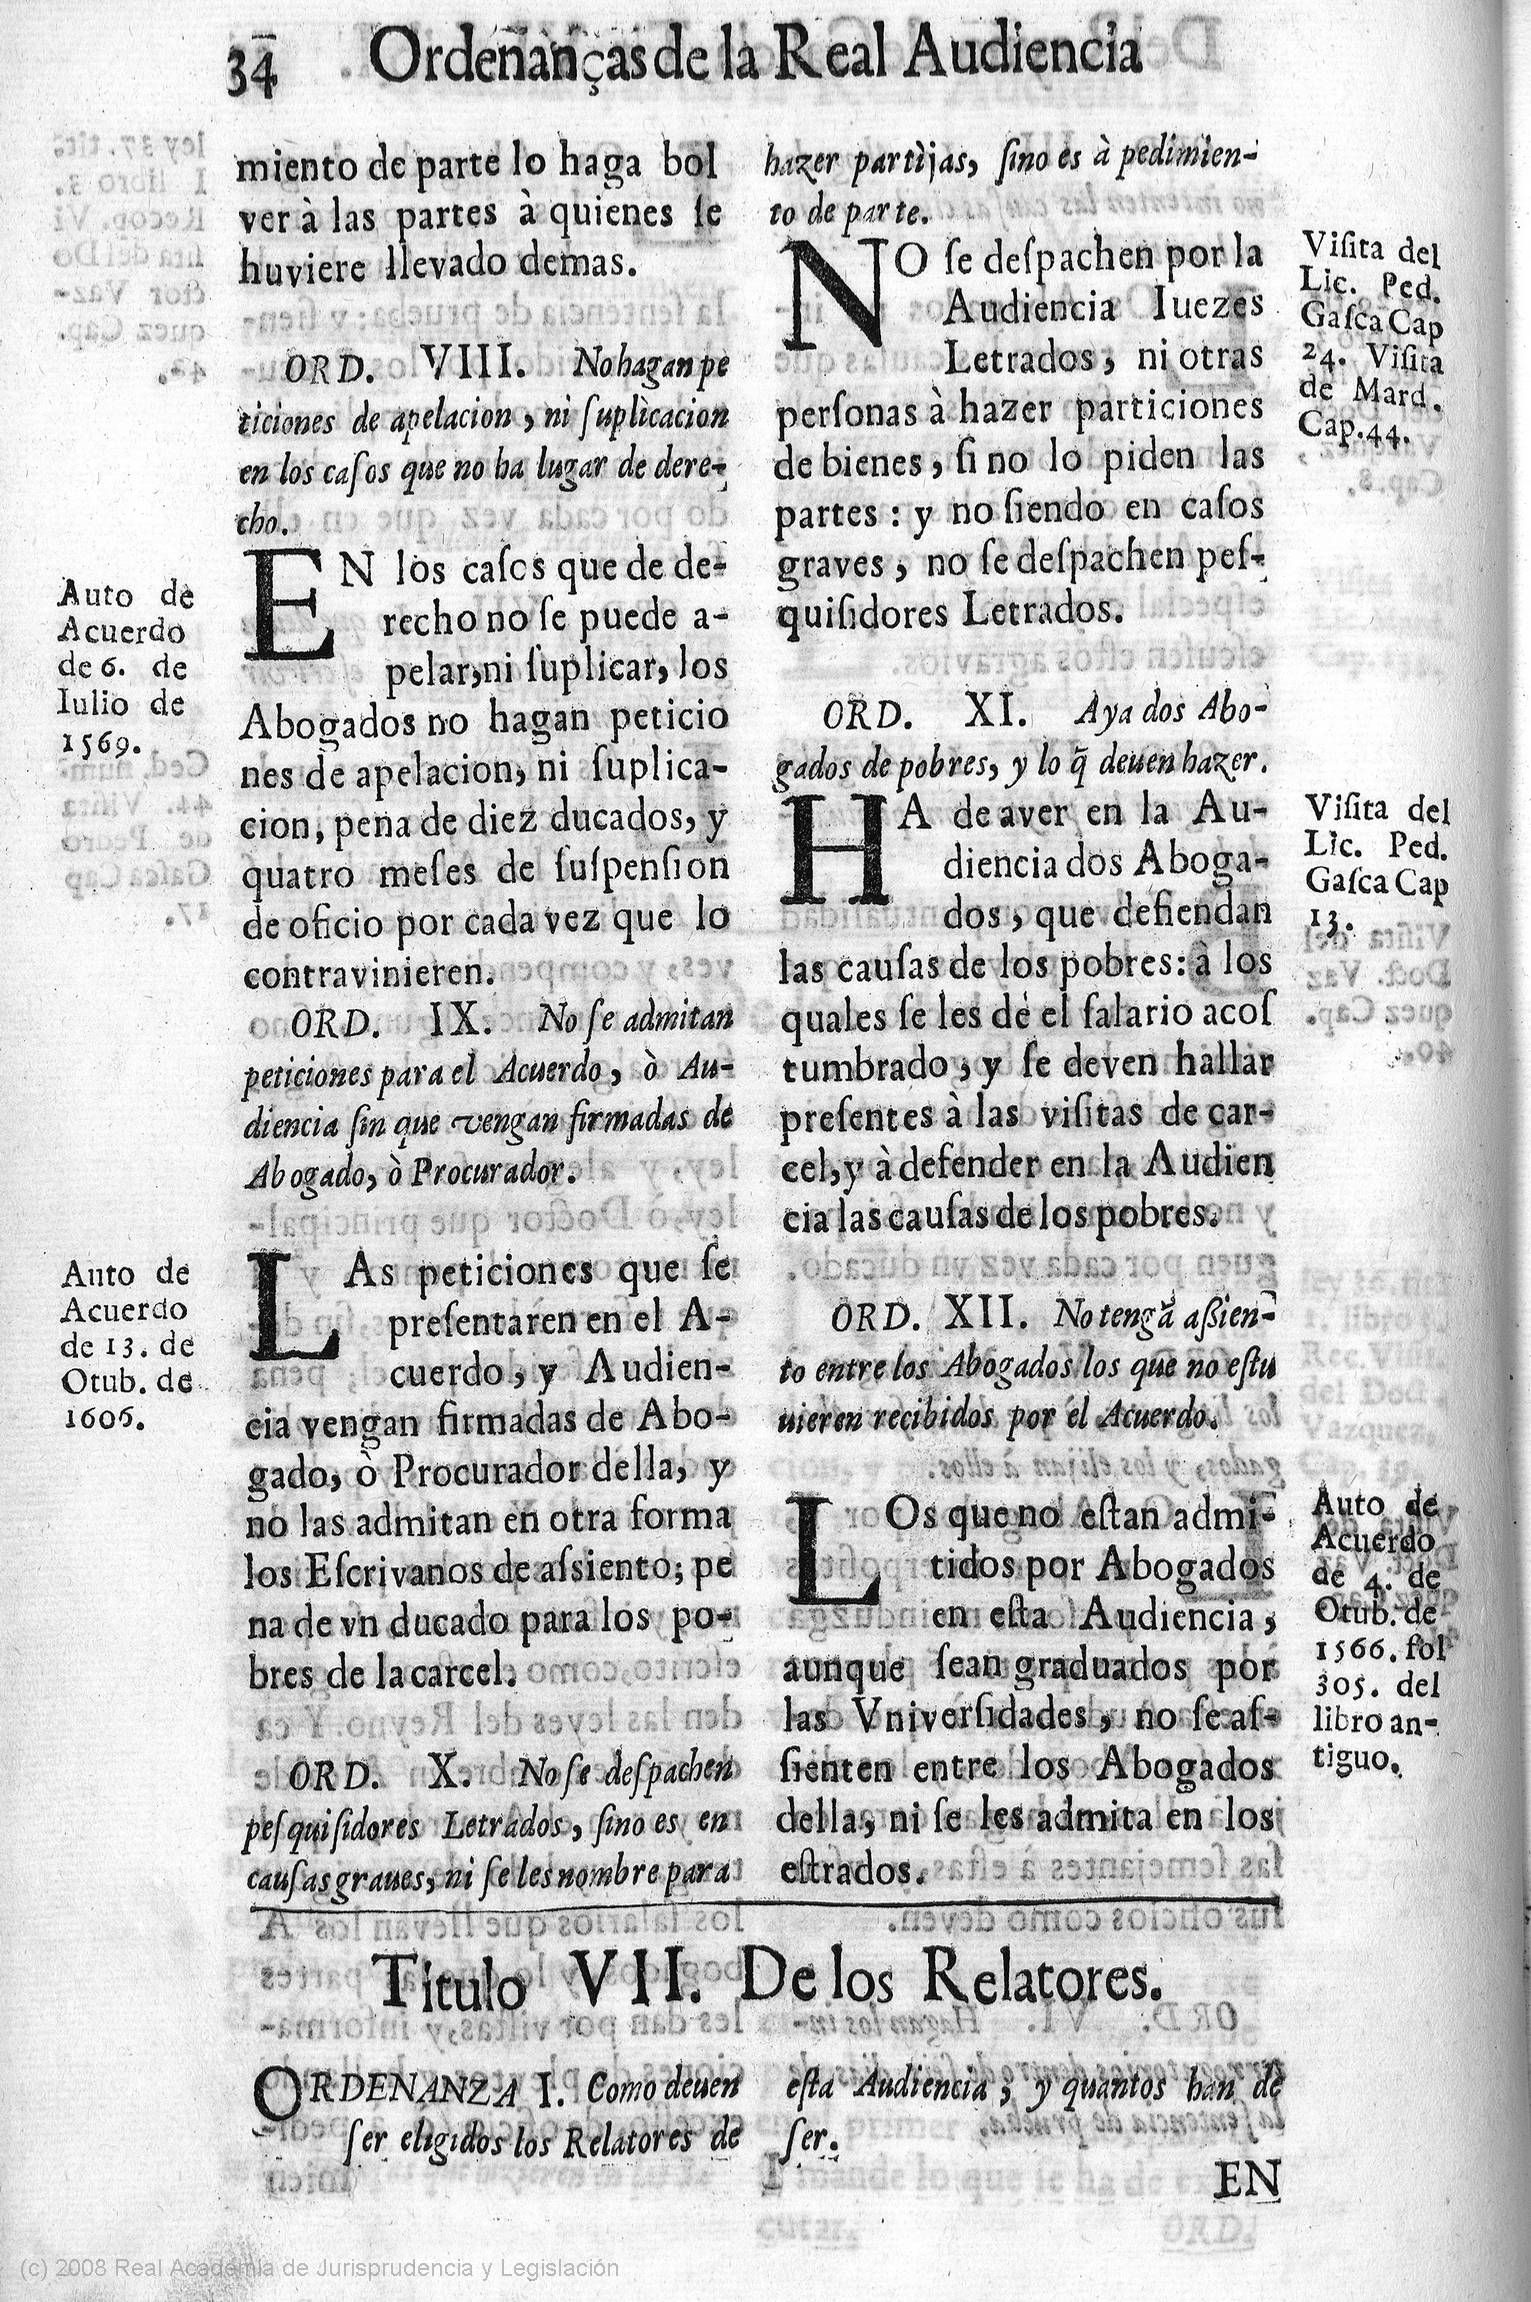 34 Ordenanças de la Real Audiencia
miento de parte lo haga bol
ver à las partes à quienes se
huviere llevado demas.
ORD. VIII. No hagan pe
ticiones de apelacion, ni suplicacion
en los casos que no ha lugar de dere-
cho.
Auto de
Acuerdo
de 6. de
Iulio de
1569.
EN los casos que de de-
recho no se puede a-
pelar, ni suplicar, los
Abogados no hagan peticio
nes de apelacion, ni suplica-
cion, pena de diez ducados, y
quatro meses de suspension
de oficio por cada vez que lo
contravinieren.
ORD. IX. No se admitan
peticiones para el Acuerdo, ò Au-
diencia sin que vengan firmadas de
Abogado, ò Procurador.
Auto de
Acuerdo
de 13. de
Otub. de
1606.
LAs peticiones que se
presentaren en el A-
cuerdo, y Audien-
cia vengan firmadas de Abo-
gado, ò Procurador della, y
no las admitan en otra forma
los Escrivanos de assiento; pe
na de vn ducado para los po-
bres de la carcel.
ORD. X. No se despachen
pesquisidores Letrados, sino es en
causas graues, ni se les nombre para
hazer partijas, sino es à pedimien-
to de parte.
Visita del
Lic. Ped.
Gasca Cap
24. Visita
de Mard.
Cap. 44.
NO se despachen por la
Audiencia Iuezes
Letrados, ni otras
personas à hazer particiones
de bienes, si no lo piden las
partes: y no siendo en casos
graves, no se despachen pes-
quisidores Letrados.
ORD. XI. Aya dos Abo-
gados de pobres, y lo q̃ deuen hazer.
Visita del
Lic. Ped.
Gasca Cap
13.
HA de aver en la Au-
diencia dos Aboga-
dos, que defiendan
las causas de los pobres: à los
quales se les dè el salario acos
tumbrado, y se deven hallar
presentes à las visitas de car-
cel, y à defender en la Audien
cia las causas de los pobres.
ORD. XII. No tengã assien-
to entre los Abogados los que no estu
uieren recibidos por el Acuerdo.
Auto de
Acuerdo
de 4. de
Otub. de
1566. fol
305. del
libro an-
tiguo.
LOs que no estan admi-
tidos por Abogados
en esta Audiencia,
aunque sean graduados por
las Vniversidades, no se as-
sienten entre los Abogados
della, ni se les admita en los
estrados.
Titulo VII. De los Relatores.
ORDENANZA I. Como deuen
ser eligidos los Relatores de
esta Audiencia, y quantos han de
ser.
EN
(c) 2008 Real Academia de Jurisprudencia y Legislación